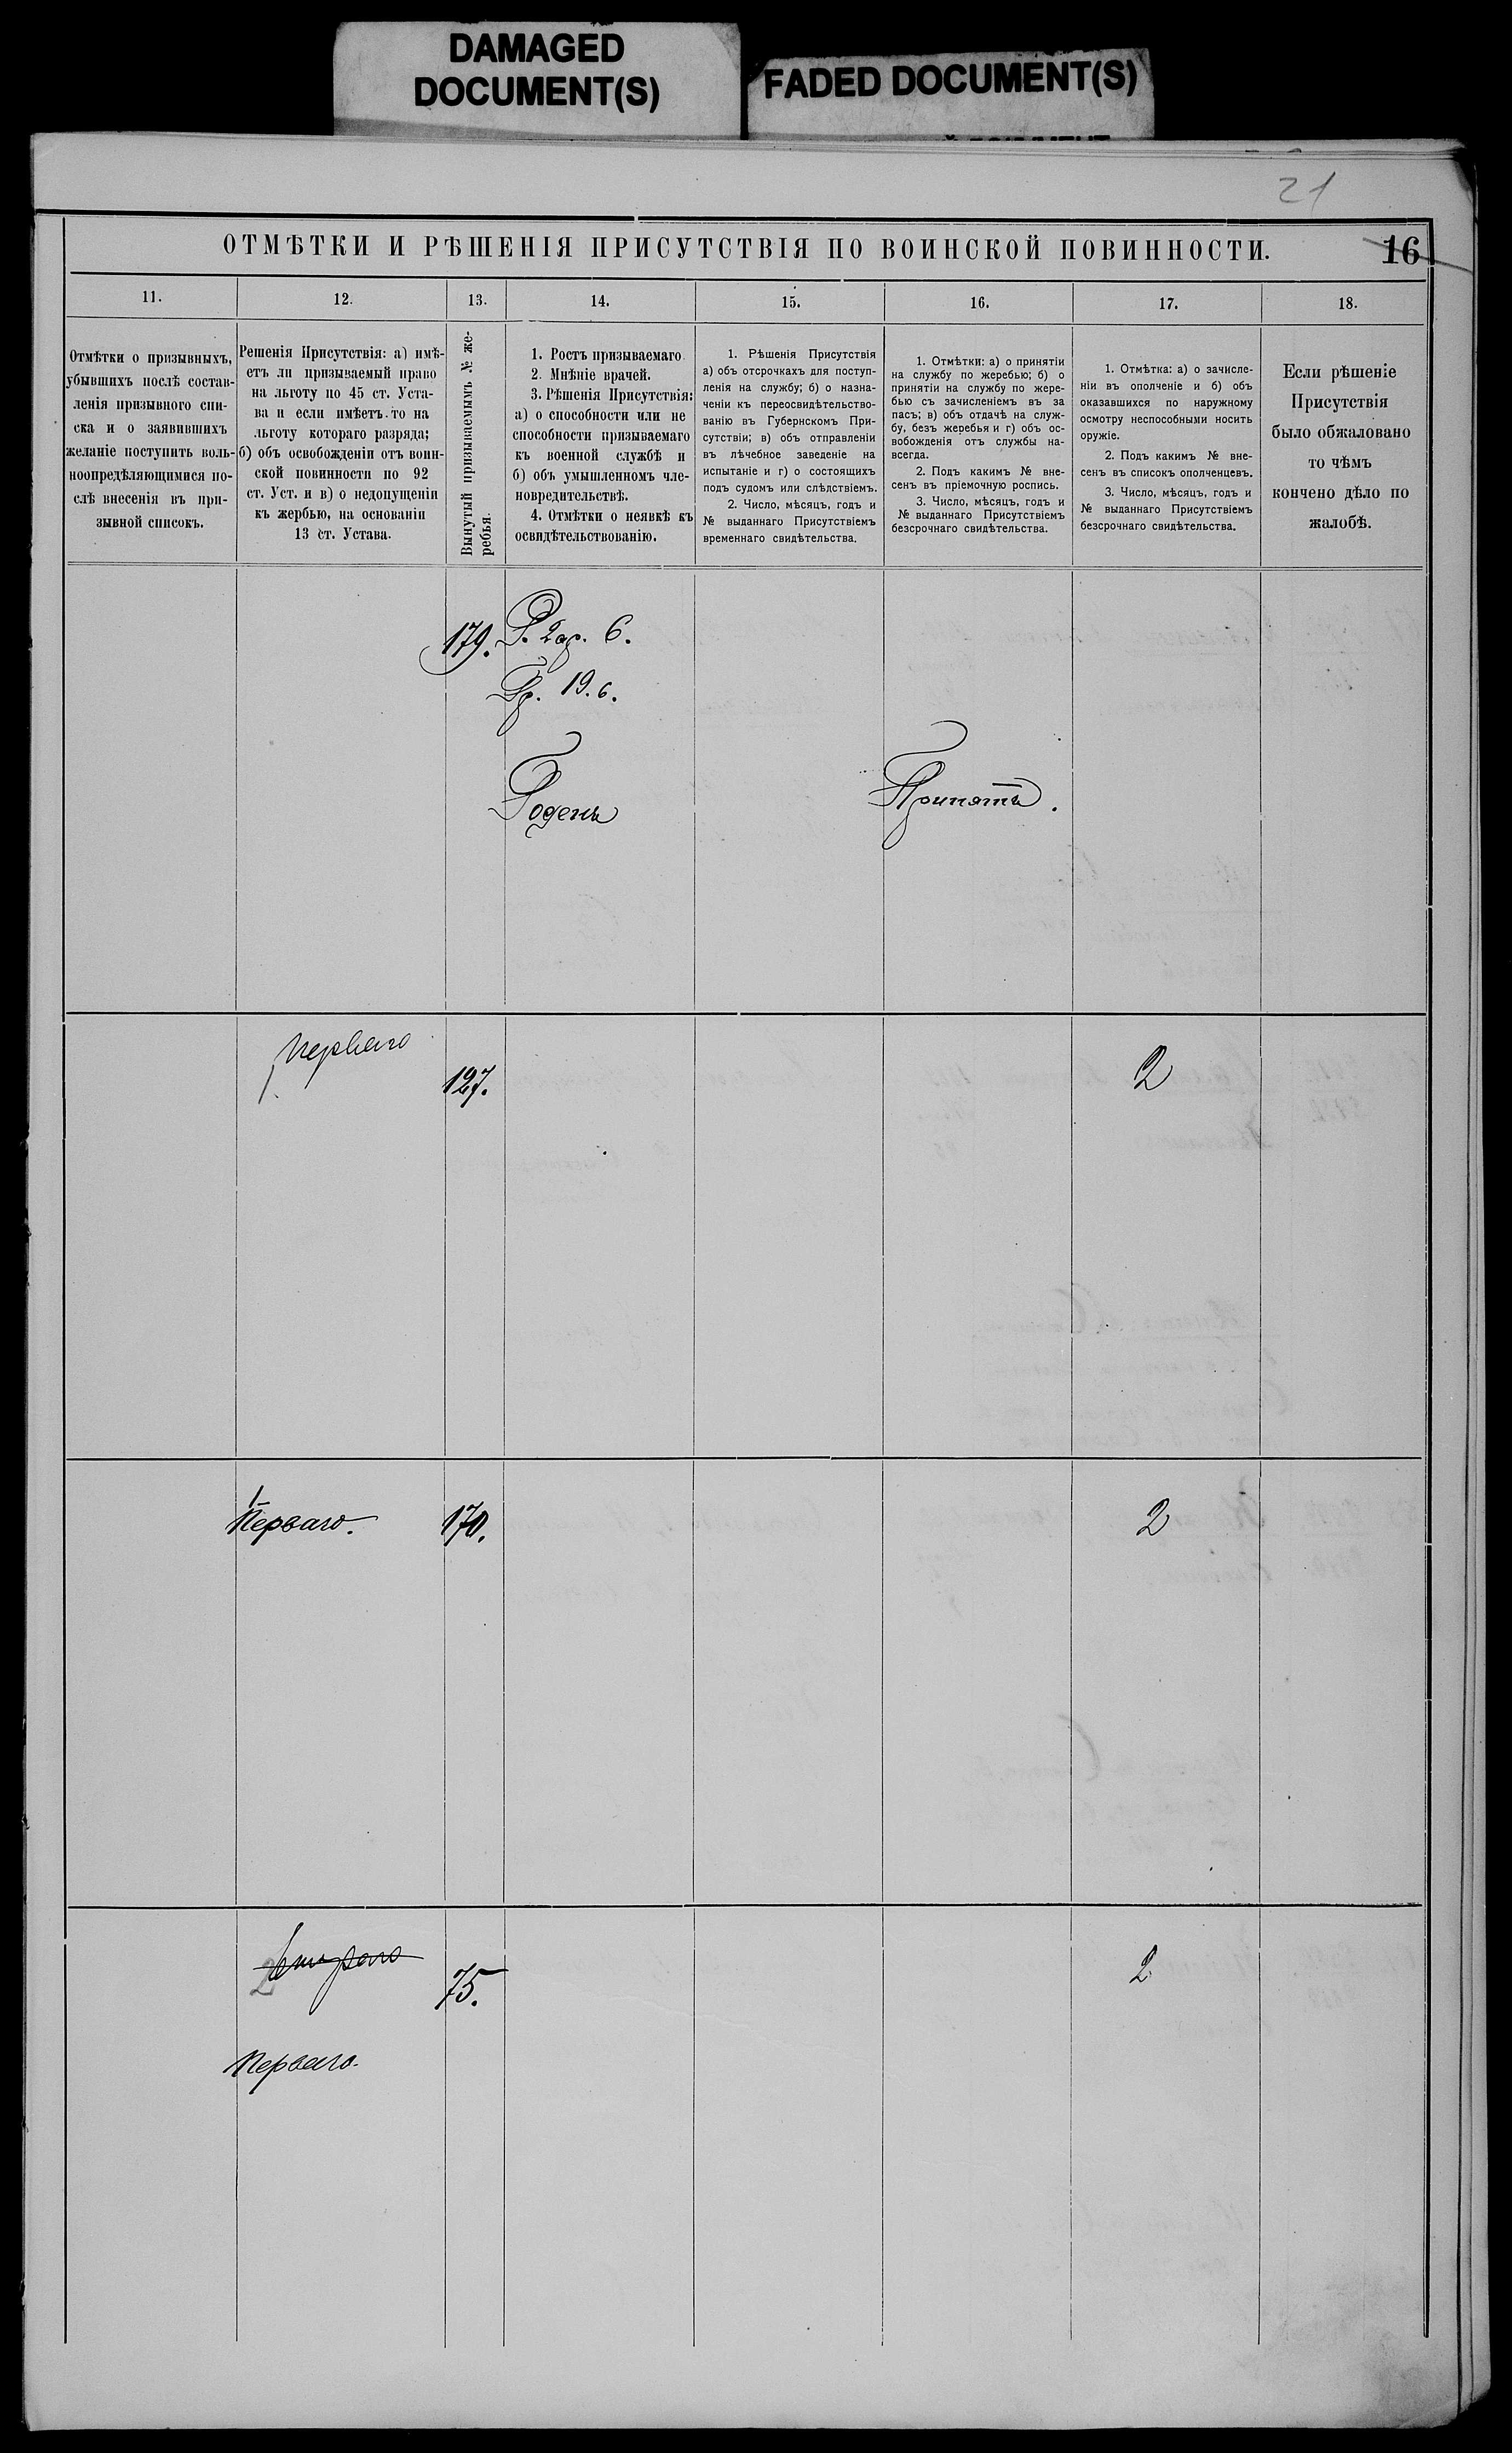 DAMAGED
DOCUMENT(S)
FADED DOCUMENT(S)
21
ОТМѢТКИ И РѢШЕНІЯ ПРИСУТСТВІЯ ПО ВОИНСКОЙ ПОВИННОСТИ.
16
11.
12.
13.
14.
15.
16.
17.
18.
Отмѣтки о призывныхъ,
убывшихъ послѣ состав-
ленія призывного спи-
ска и о заявившихъ
желаніе поступить воль-
ноопредѣляющимися по-
слѣ внесенія въ при-
зывной списокъ.
Решенія Присутствія: а) имѣ-
етъ ли призываемый право
на льготу по 45 ст. Уста-
ва и если имѣетъ то на
льготу котораго разряда;
б) объ освобожденіи отъ воин-
ской повинности по 92
ст. Уст. и в) о недопущеніи
къ жербью, на основаніи
13 ст. Устава.
Вынутый призываемымъ № же-
ребья.
1. Ростъ призываемаго
2. Мнѣніе врачей.
3. Рѣшенія Присутствія:
а) о способности или не
способности призываемаго
къ военной службѣ и
б) объ умышленномъ чле-
новредительствѣ.
4. Отмѣтки о неявкѣ къ
освидѣтельствованію.
1. Рѣшенія Присутствія
а) объ отсрочкахъ для поступ-
ленія на службу; б) о назна-
ченіи къ переосвидѣтельство-
ванію въ Губернскомъ При-
сутствіи; в) объ отправленіи
въ лѣчебное заведеніе на
испытаніе и г) о состоящихъ
подъ судомъ или слѣдствіемъ.
2. Число, мѣсяцъ, годъ и
№ выданнаго Присутствіемъ
временнаго свидѣтельства.
1. Отмѣтки: а) о принятіи
на службу по жеребью; б) о
принятіи на службу по жере-
бью съ зачисленіемъ въ за
пасъ; в) объ отдачѣ на служ-
бу, безъ жеребья и г) объ ос-
вобожденія отъ службы на-
всегда.
2. Подъ какимъ № вне-
сенъ въ пріемочную роспись.
3. Число, мѣсяцъ, годъ и
№ выданнаго Присутствіемъ
безсрочнаго свидѣтельства.
1. Отмѣтка: а) о зачисле-
ніи въ ополченіе и б) объ
оказавшихся по наружному
осмотру неспособными носить
оружіе.
2. Подъ какимъ № вне-
сенъ въ списокъ ополченцевъ.
3. Число, мѣсяцъ, годъ и
№ выданнаго Присутствіемъ
безсрочнаго свидѣтельства.
Если рѣшеніе
Присутствія
было обжаловано
то чѣмъ
кончено дѣло по
жалобѣ.
179.
Р. 2 ар. 6.
Гр. 19. в.
Годенъ
Принятъ.
Перваго
1.
127.
2
1
Перваго.
170.
2
2
Втораго
75.
2
Перваго.